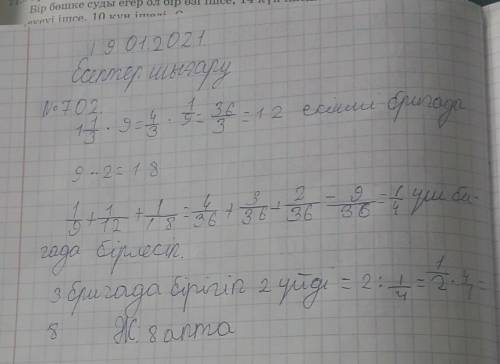 Бір бөшке суды егер ол бір өзі ішсе, 14 күн
екеуі ішсе, 10 күн ішеді.
19.01.2021
Есептер шығару
№702
1 1/3 · 9 = 4/3 · 1/9 = 36/3 = 12 екінші бригада
9 - 2 = 18
1/9 + 1/12 + 1/18 = 4/36 + 3/36 + 2/36 = 9/36 = 1/4 үш бри-
гада бірлесіп.
3 бригада бірігіп 2 үйді = 2 : 1/4 = 1/2 · 4/1 =
8 Ж. 8 апта